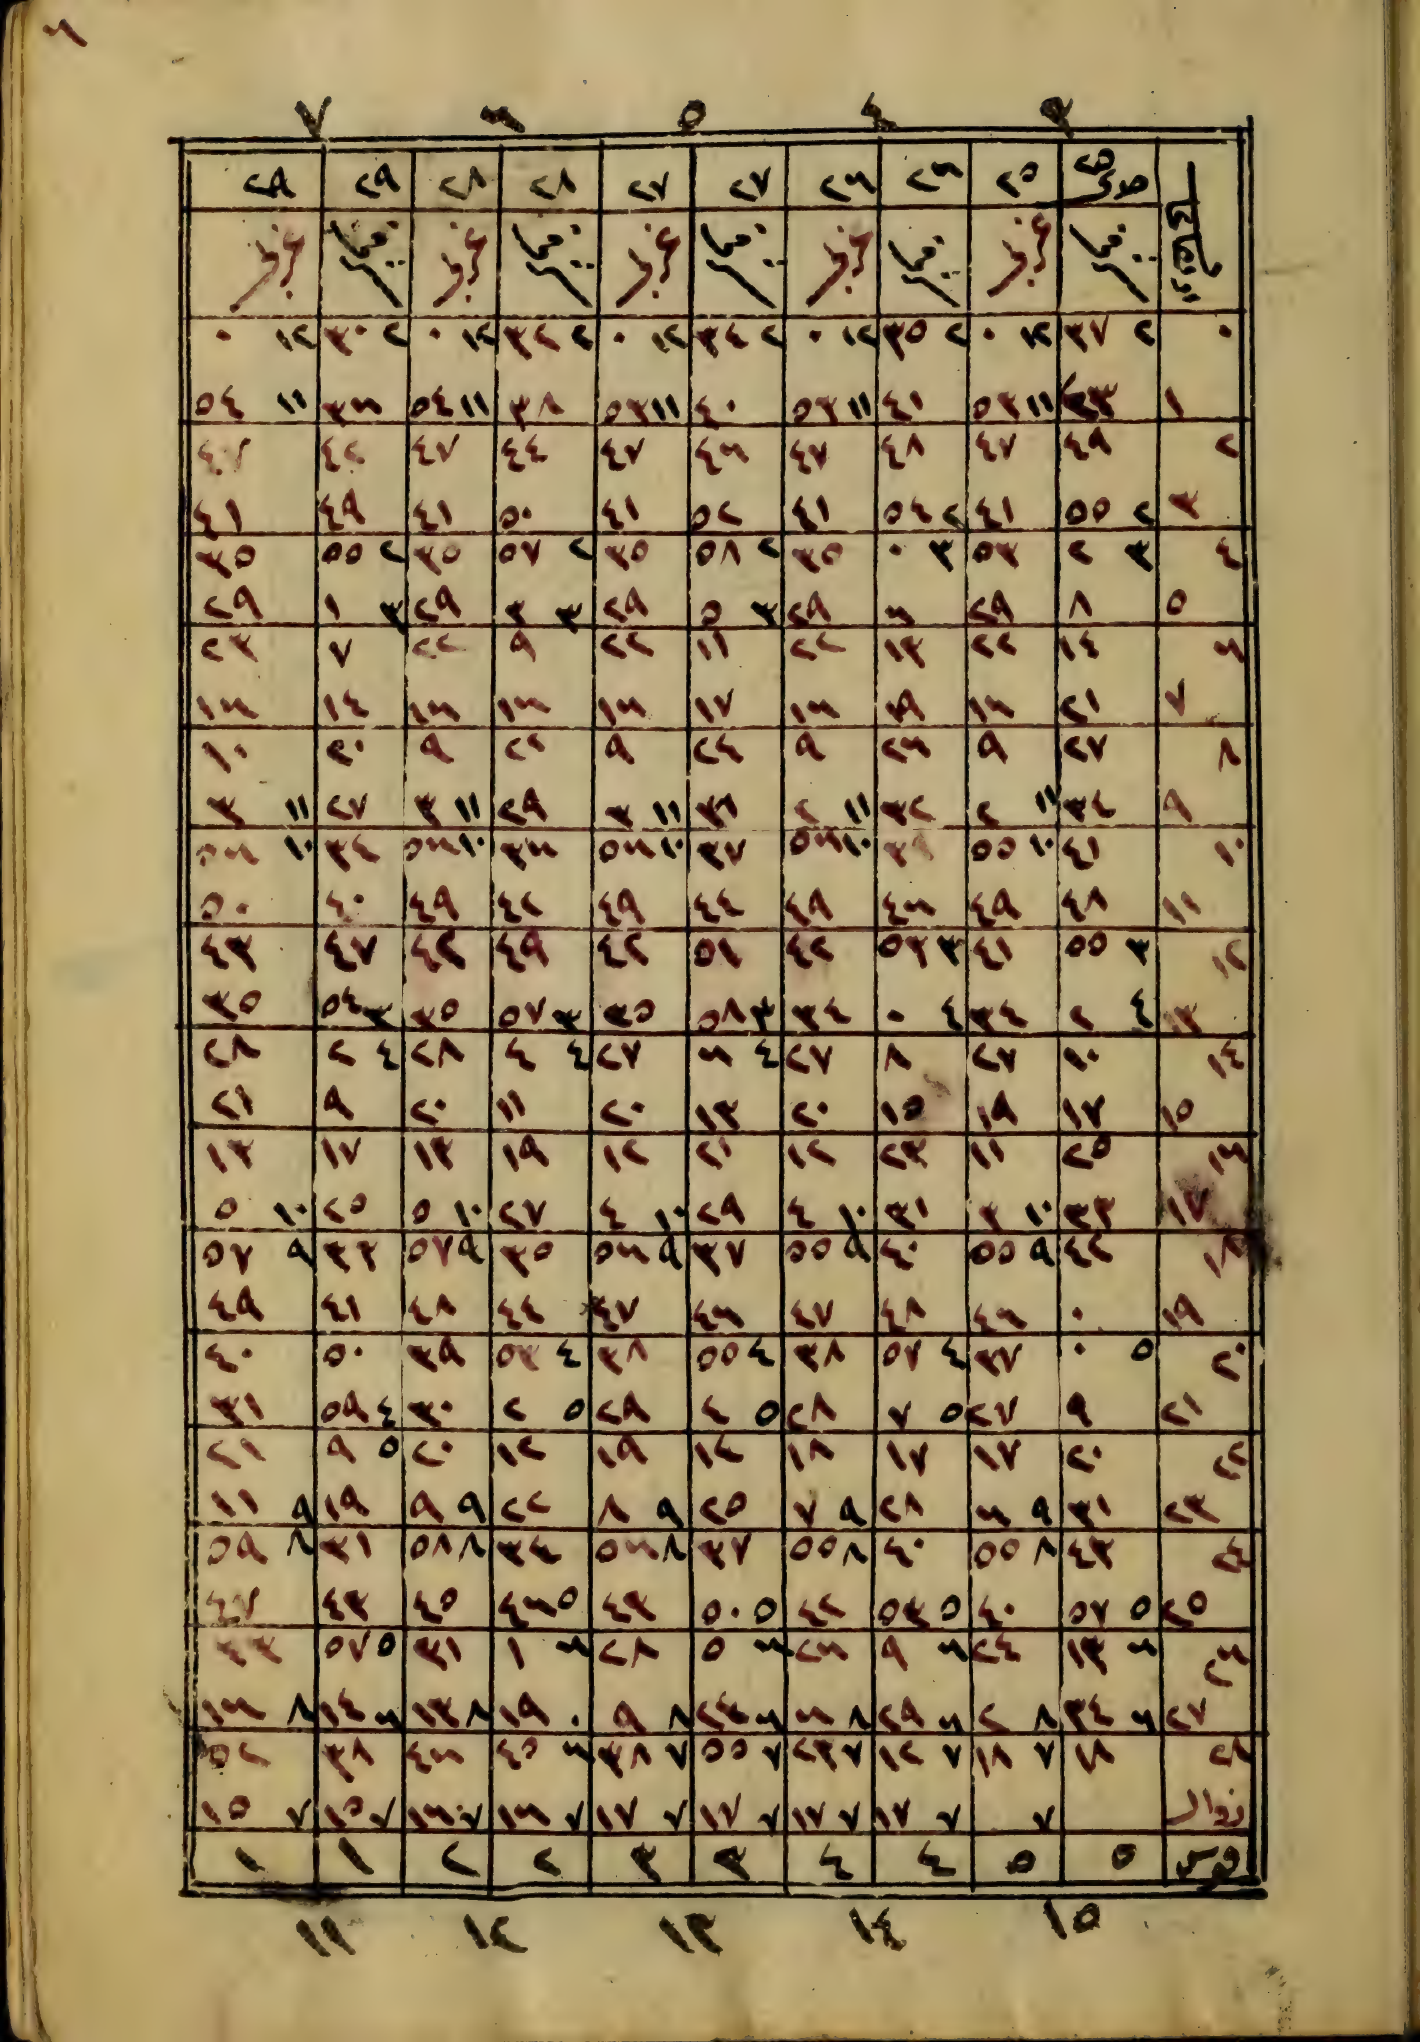 ٦
٣ ٤ ٥ ٦ ٧
٢٥ ٢٥ ٢٦ ٢٦ ٢٧ ٢٧ ٢٨ ٢٨ ٢٩ ٢٩
٠ ٢ ٣٧ ١٢ ٠ ٢ ٣٥ ١٢ ٠ ٢ ٣٤ ١٢ ٠ ٢ ٣٢ ١٢ ٠ ٢ ٣٠ ١٢ ٠
١ ٤٣ ١١ ٥٣ ٤١ ١١ ٥٣ ٤٠ ١١ ٥٣ ٣٨ ١١ ٥٤ ٣٦ ١١ ٥٤
٢ ٤٩ ٤٧ ٤٨ ٤٧ ٤٦ ٤٧ ٤٤ ٤٧ ٤٢ ٤٧
٣ ٢ ٥٥ ٤١ ٢ ٥٤ ٤١ ٥٢ ٤١ ٥٠ ٤١ ٤٩ ٤١
٤ ٣ ٢ ٥٣ ٣ ٠ ٣٥ ٢ ٥٨ ٣٥ ٢ ٥٧ ٣٥ ٢ ٥٥ ٣٥
٥ ٨ ٢٩ ٦ ٢٩ ٣ ٥ ٢٩ ٣ ٣ ٢٩ ٣ ١ ٢٩
٦ ١٤ ٢٢ ١٣ ٢٢ ١١ ٢٢ ٩ ٢٢ ٧ ٢٣
٧ ٢١ ١٦ ١٩ ١٦ ١٧ ١٦ ١٦ ١٦ ١٤ ١٦
٨ ٢٧ ٩ ٢٦ ٩ ٢٤ ٩ ٢٢ ٩ ٢٠ ١٠
٩ ٣٤ ١١ ٢ ٣٢ ١١ ٢ ٣١ ١١ ٣ ٢٩ ١١ ٣ ٢٧ ١١ ٣
١٠ ٤١ ١٠ ٥٥ ١٠ ٥٦ ٣٧ ١٠ ٥٦ ٣٦ ١٠ ٥٦ ٣٤ ١٠ ٥٦
١١ ٤٨ ٤٩ ٤٦ ٤٩ ٤٤ ٤٩ ٤٢ ٤٩ ٤٠ ٥٠
١٢ ٣ ٥٥ ٤١ ٣ ٥٣ ٤٢ ٥١ ٤٢ ٤٩ ٤٢ ٤٧ ٤٣
١٣ ٤ ٢ ٣٤ ٤ ٠ ٣٤ ٣ ٥٨ ٣٥ ٣ ٥٧ ٣٥ ٣ ٥٤ ٣٥
١٤ ١٠ ٢٧ ٨ ٢٧ ٤ ٦ ٢٧ ٤ ٤ ٢٨ ٤ ٢ ٢٨
١٥ ١٧ ١٩ ١٥ ٢٠ ١٣ ٢٠ ١١ ٢٠ ٩ ٢١
١٦ ٢٥ ١١ ٢٣ ١٢ ٢١ ١٢ ١٩ ١٣ ١٧ ١٣
١٧ ٣٣ ١٠ ٣ ٣١ ١٠ ٤ ٢٩ ١٠ ٤ ٢٧ ١٠ ٥ ٢٥ ١٠ ٥
١٨ ٤٢ ٩ ٥٥ ٤٠ ٩ ٥٥ ٣٧ ٩ ٥٦ ٣٥ ٩ ٥٧ ٣٣ ٩ ٥٧
١٩ ٠ ٤٦ ٤٨ ٤٧ ٤٦ ٤٧ ٤٤ ٤٨ ٤١ ٤٩
٢٠ ٥ ٠ ٣٧ ٤ ٥٧ ٣٨ ٤ ٥٥ ٣٨ ٤ ٥٣ ٣٩ ٥٠ ٤٠
٢١ ٩ ٢٧ ٥ ٧ ٢٨ ٥ ٤ ٢٩ ٥ ٢ ٣٠ ٤ ٥٩ ٣١
٢٢ ٢٠ ١٧ ١٧ ١٨ ١٤ ١٩ ١٢ ٢٠ ٥ ٩ ٢١
٢٣ ٣١ ٩ ٦ ٢٨ ٩ ٧ ٢٥ ٩ ٨ ٢٢ ٩ ٩ ١٩ ٩ ١١
٢٤ ٤٣ ٨ ٥٥ ٤٠ ٨ ٥٥ ٣٧ ٨ ٥٦ ٣٤ ٨ ٥٨ ٣١ ٨ ٥٩
٢٥ ٥ ٥٧ ٤٠ ٥ ٥٣ ٤٢ ٥ ٥٠ ٤٣ ٥ ٤٦ ٤٥ ٤٣ ٤٧
٢٦ ٦ ١٣ ٢٤ ٦ ٩ ٢٦ ٦ ٥ ٢٨ ٦ ١ ٣١ ٥ ٥٧ ٣٣
٢٧ ٦ ٣٤ ٨ ٢ ٦ ٢٩ ٨ ٦ ٦ ٢٤ ٨ ٩ ٠ ١٩ ٨ ١٣ ٦ ١٤ ٨ ١٦
٢٨ ١٨ ٧ ١٨ ٧ ١٢ ٧ ٢٣ ٧ ٥٥ ٧ ٣٨ ٦ ٤٥ ٤٦ ٣٨ ٥٢
زوال ٧ ٧ ١٧ ٧ ١٧ ٧ ١٧ ٧ ١٧ ٧ ١٦ ٧ ١٦ ٧ ١٥ ٧ ١٥
قوس ٥ ٥ ٤ ٤ ٣ ٣ ٢ ٢ ١ ١
١٥ ١٤ ١٣ ١٢ ١١